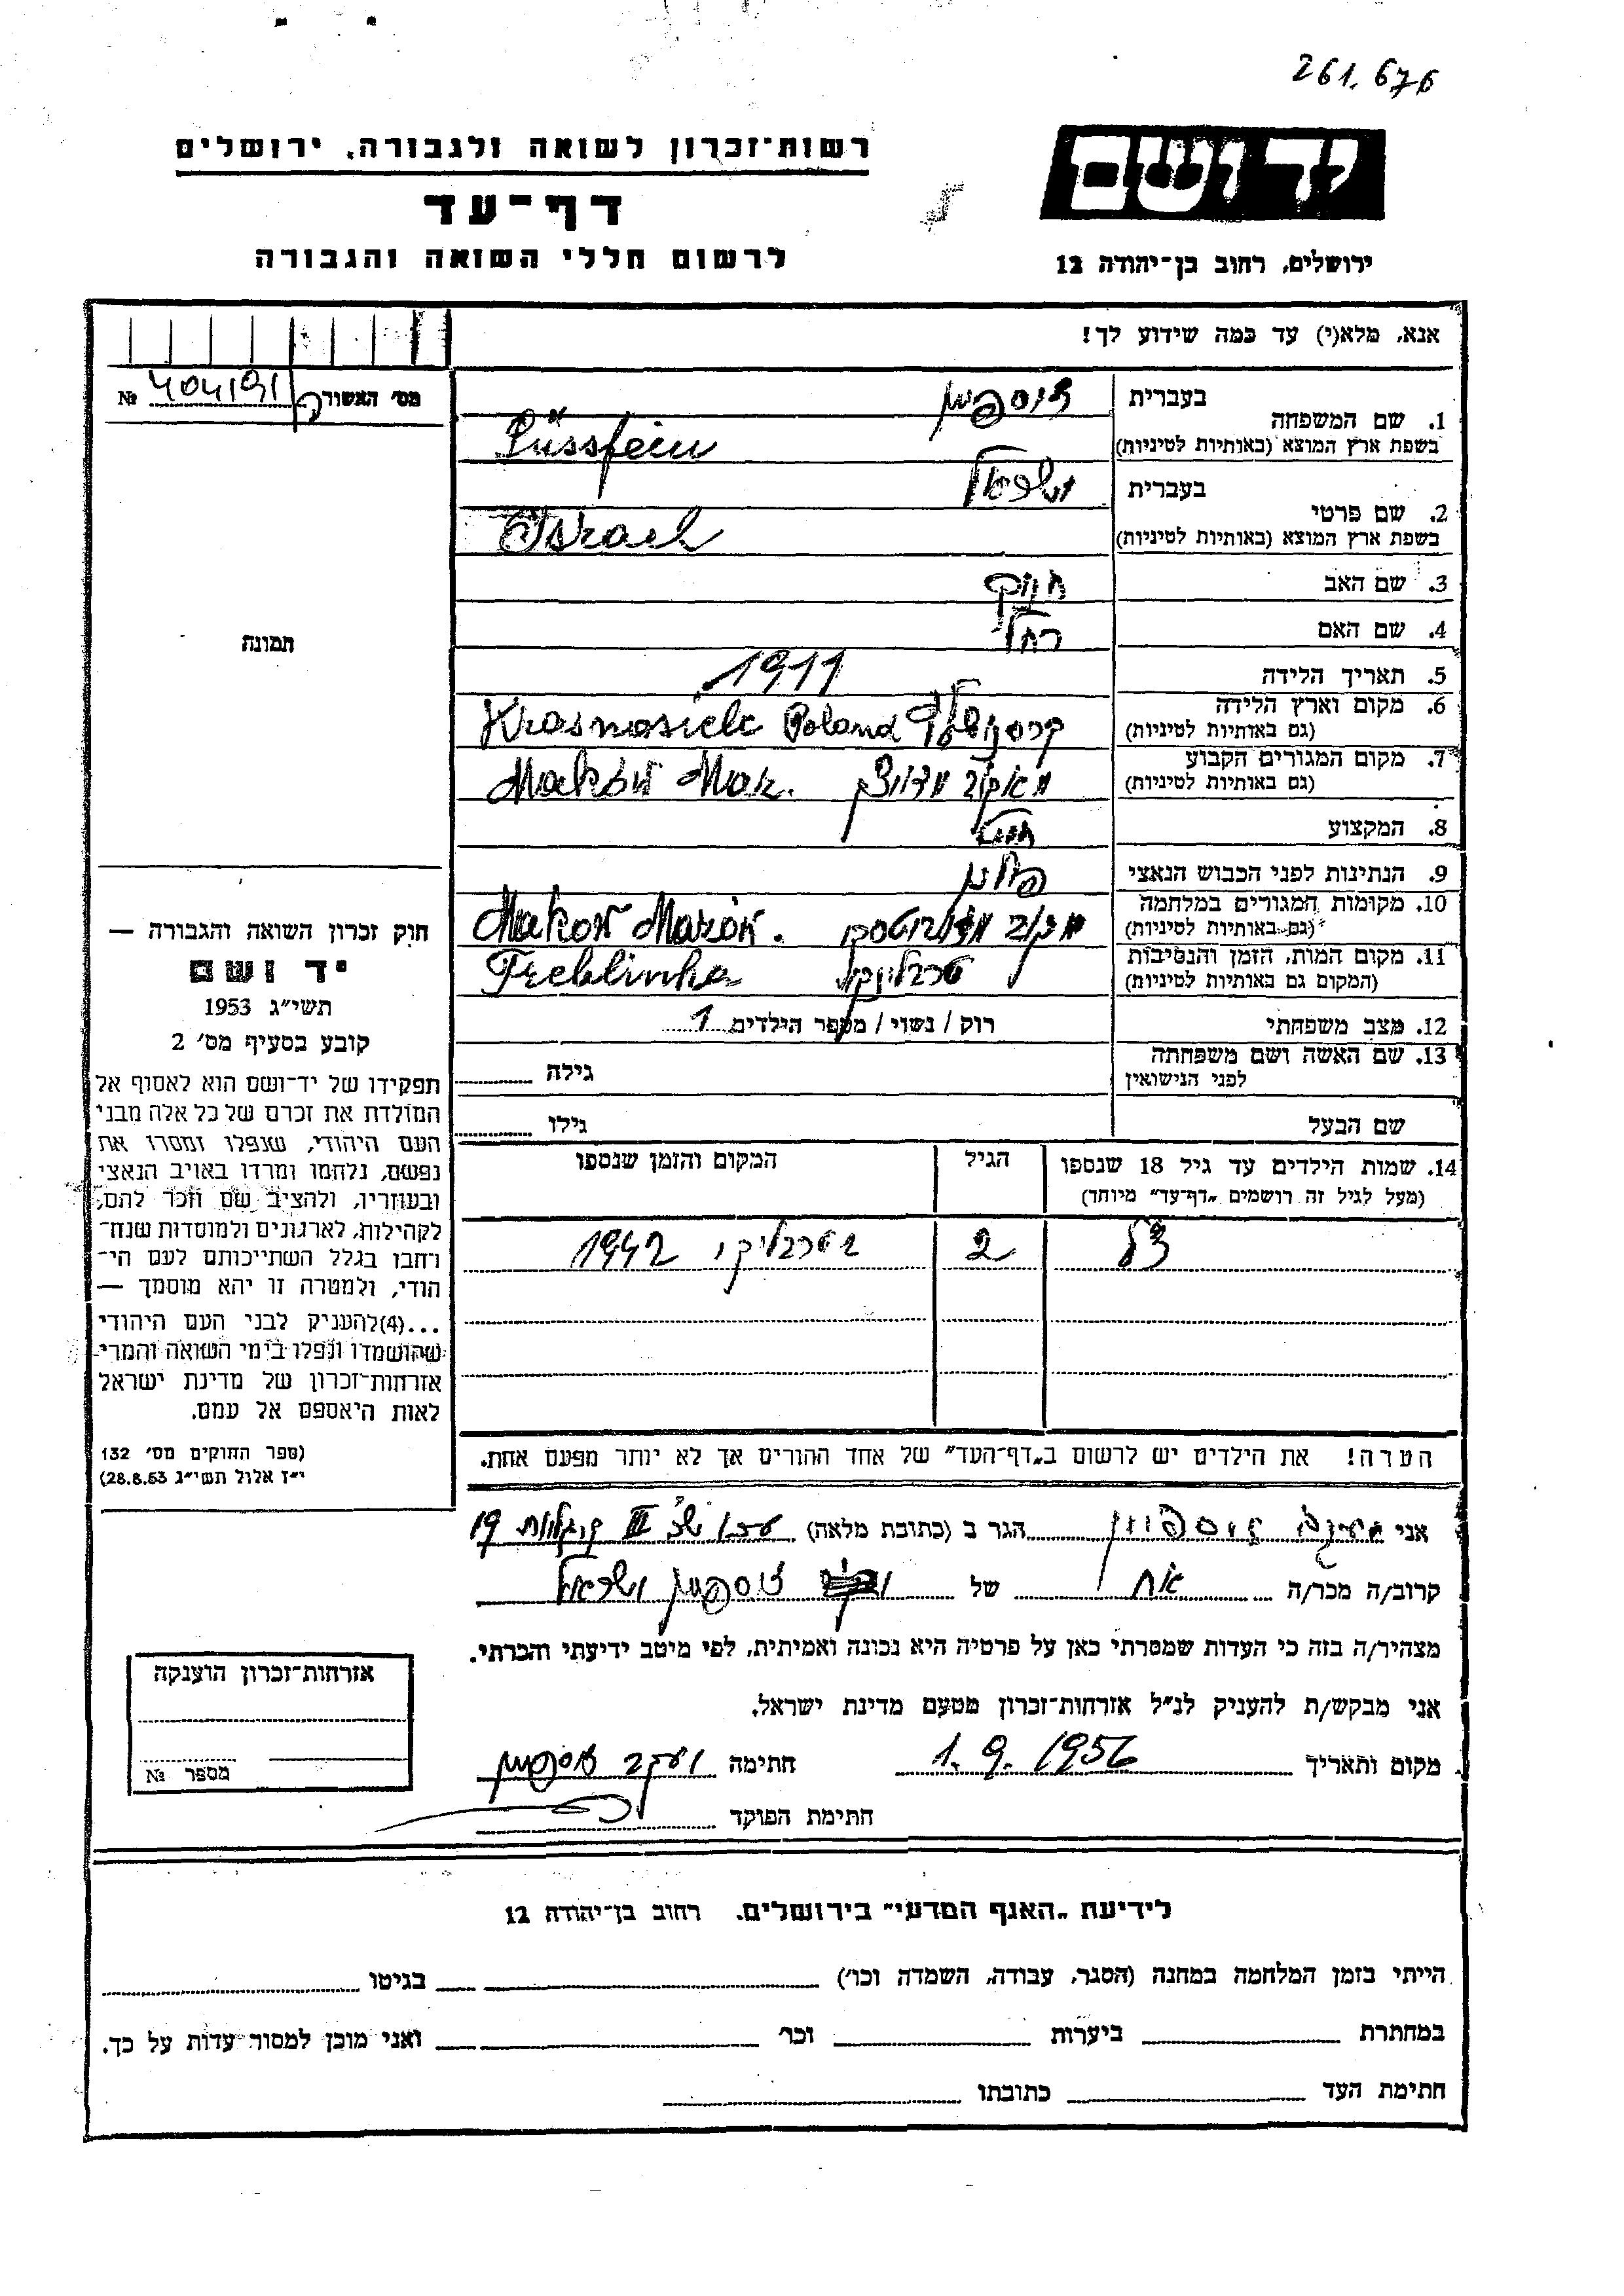 261.676
רשות־זכרון לשואה ולגבורה, ירושלים
דף־עד
לרשום חללי השואה והגבורה
יד ושם
ירושלים, רחוב בן־יהודה 12
אנא, מלא(י) עד כמה שידוע לך!
מס׳ האשור № 404191
1. שם המשפחה
בעברית זיספיין
בשפת ארץ המוצא (באותיות לטיניות) Süssfein
2. שם פרטי
בעברית ישראל
בשפת ארץ המוצא (באותיות לטיניות) Israel
3. שם האב
4. שם האם רחל
5. תאריך הלידה 1911
6. מקום וארץ הלידה
(גם באותיות לטיניות) Krasnosielc Poland
7. מקום המגורים הקבוע
(גם באותיות לטיניות) Maków Maz.
8. המקצוע חייט
9. הנתינות לפני הכבוש הנאצי פולין
10. מקומות המגורים במלחמה
(גם באותיות לטיניות) Maków Mazów.
11. מקום המות, הזמן והנסיבות
(המקום גם באותיות לטיניות) טרבלינקי Treblinka
12. מצב משפחתי רוק / נשוי / מספר הילדים 1
13. שם האשה ושם משפחתה
לפני הנישואין
גילה
שם הבעל
גילו
14. שמות הילדים עד גיל 18 שנספו
(מעל לגיל זה רושמים „דף־עד” מיוחד)
הגיל
המקום והזמן שנספו
2 1942
הערה! את הילדים יש לרשום ב„דף־העד” של אחד ההורים אך לא יותר מפעם אחת.
תמונה
חוק זכרון השואה והגבורה —
יד ושם
תשי״ג 1953
קובע בסעיף מס׳ 2
תפקידו של יד־ושם הוא לאסוף אל
המולדת את זכרם של כל אלה מבני
העם היהודי, שנפלו ומסרו את
נפשם, נלחמו ומרדו באויב הנאצי
ובעוזריו, ולהציב שם וזכר להם,
לקהילות, לארגונים ולמוסדות שנח־
רחבו בגלל השתייכותם לעם הי־
הודי, ולמטרה זו יהא מוסמך —
...(4)להעניק לבני העם היהודי
שהושמדו ונפלו בימי השואה והמרי
אזרחות־זכרון של מדינת ישראל
לאות היאספם אל עמם.
(ספר החוקים מס׳ 132
י״ז אלול תשי״ג 28.8.53)
אני יעקב זיספיין הגר ב (כתובת מלאה) 19
קרוב/ה מכר/ה אח של זיספיין ישראל
מצהיר/ה בזה כי העדות שמסרתי כאן על פרטיה היא נכונה ואמיתית, לפי מיטב ידיעתי והכרתי.
אני מבקש/ת להעניק לנ״ל אזרחות־זכרון מטעם מדינת ישראל.
מקום ותאריך 1.9.1956 חתימה יעקב זיספיין
חתימת הפוקד
אזרחות־זכרון הוענקה
מספר №
לידיעת „האגף המדעי” בירושלים. רחוב בן־יהודה 12
הייתי בזמן המלחמה במחנה (הסגר, עבודה, השמדה וכו׳) בגיטו
במחתרת ביערות וכו׳ ואני מוכן למסור עדות על כך.
חתימת העד כתובתו